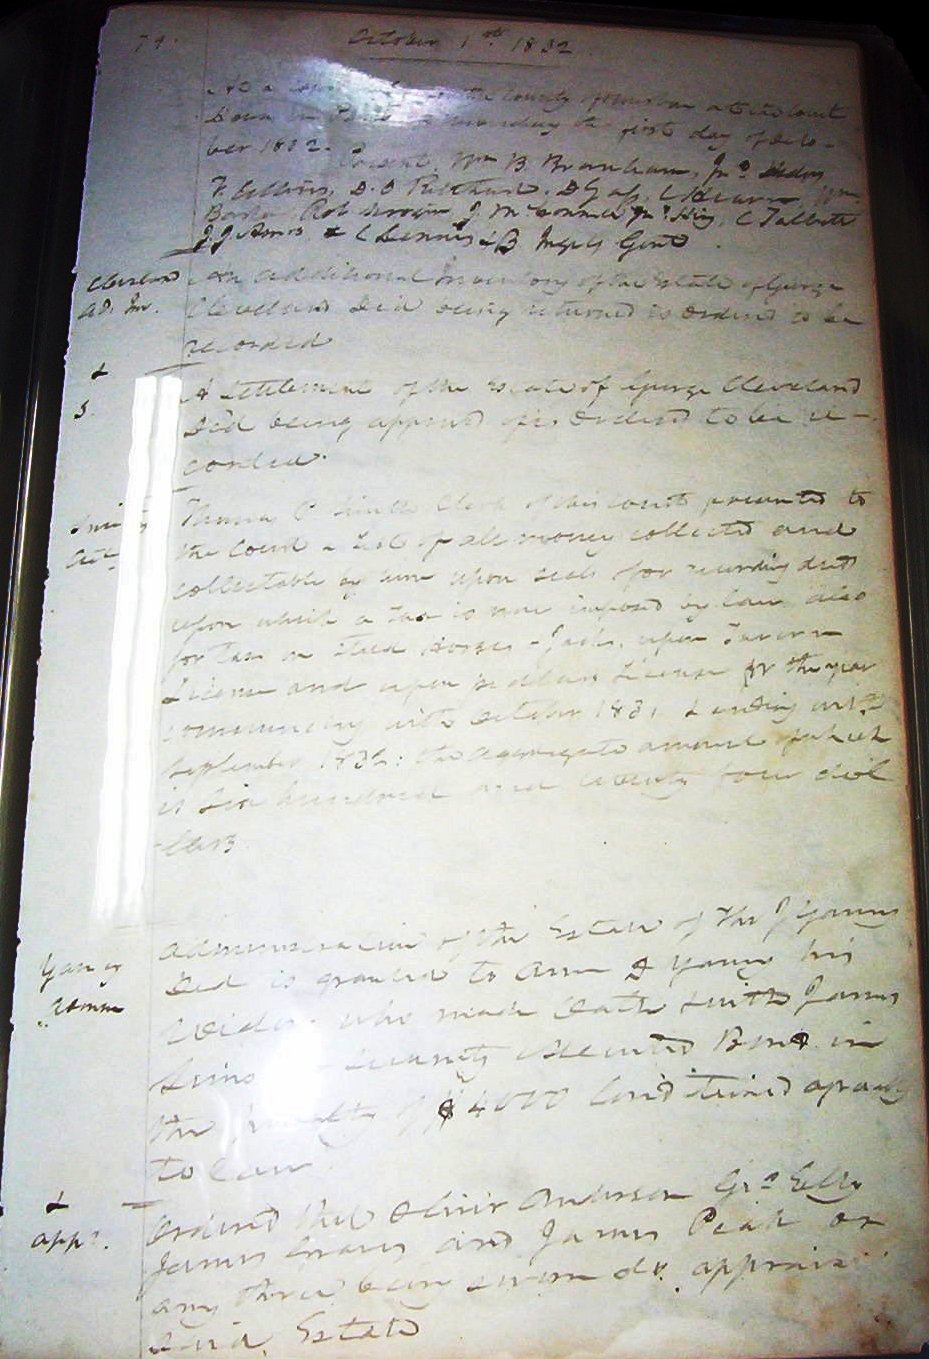 October 1st 1832
At a County the County of at the Court
House in on monday the first day of Octo-
ber 1832. Present, Wm B. Branham, Jno
F. Collins, D. O D Gass, Wm
Barker, Rob J. McConnell, Jno King, C Talbott
J. J. Amos & C Dennis & B Gent
Cleveland
ad. Inv.
An additional Inventory of the Estate of George
Cleveland Decd being returned is Ordered to be
recorded
&
S.
A Settlement of the Estate of George Cleveland
Decd being approved of is Ordered to be re-
corded.
Smith
Thomas P Smith Clerk of this court presented to
the Court a List of all money collected and
collectable by him upon seals for recording deeds
upon which a Tax is now imposed by law also
for Tax on Stud Horses & Jacks, upon Tavern
License and upon License for the year
commencing with October 1831 & ending with
September 1832: the aggregate amount of which
is Six hundred and twenty four dol
lars
Young
Admn
Administration of the Estate of Tho J Young
Decd is granted to Ann Young his
Widow who made Oath & with James
Sims Security executed Bond in
the penalty of $4000 Conditioned agreeably
to law
&
appr.
Ordered that Oliver Anderson Geo Ello
James and James Peak or
any three being sworn do appraise
said Estate